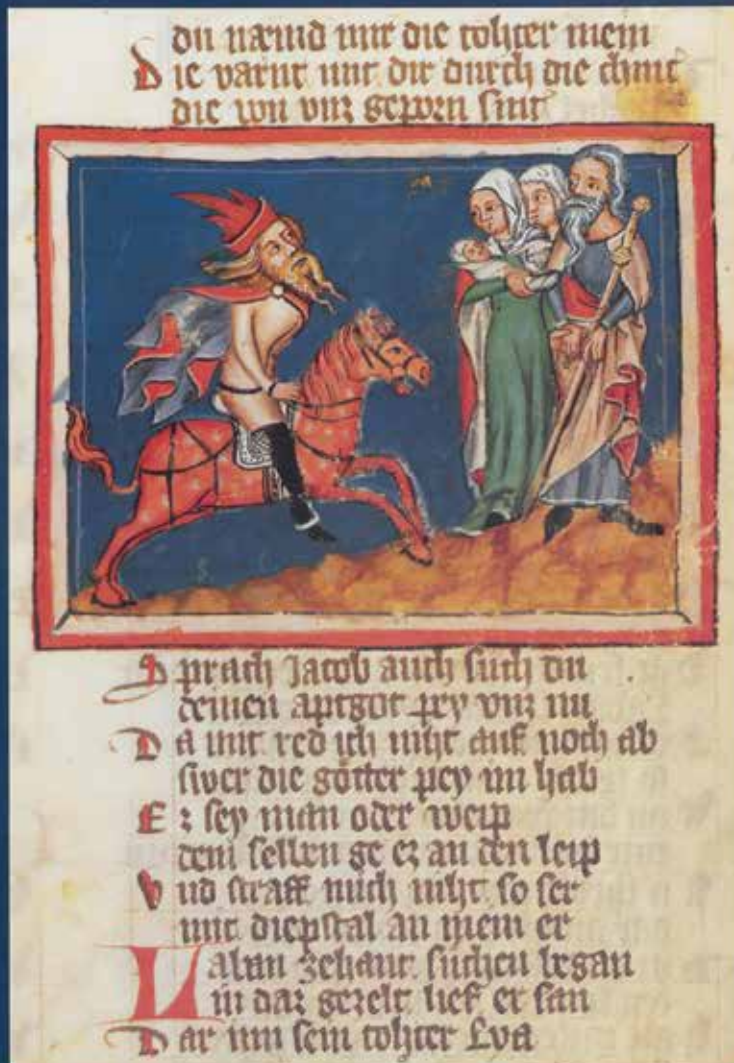 du næmst mir die tohter mein
Die varnt mit dir durch die chint
die von vnz geporn sint
Sprach Jacob auch such du
deinen aptgot pey vnz nu
Da mit red ich niht auf noch ab
swer die götter pey im hab
Er sey man oder weip
dem selben ge ez an den leip
Vnd straff mich niht so ser
mit diepstal an mein er
Laban zehant suchen began
in daz gezelt lief er san
Dar inn sein tohter Lya